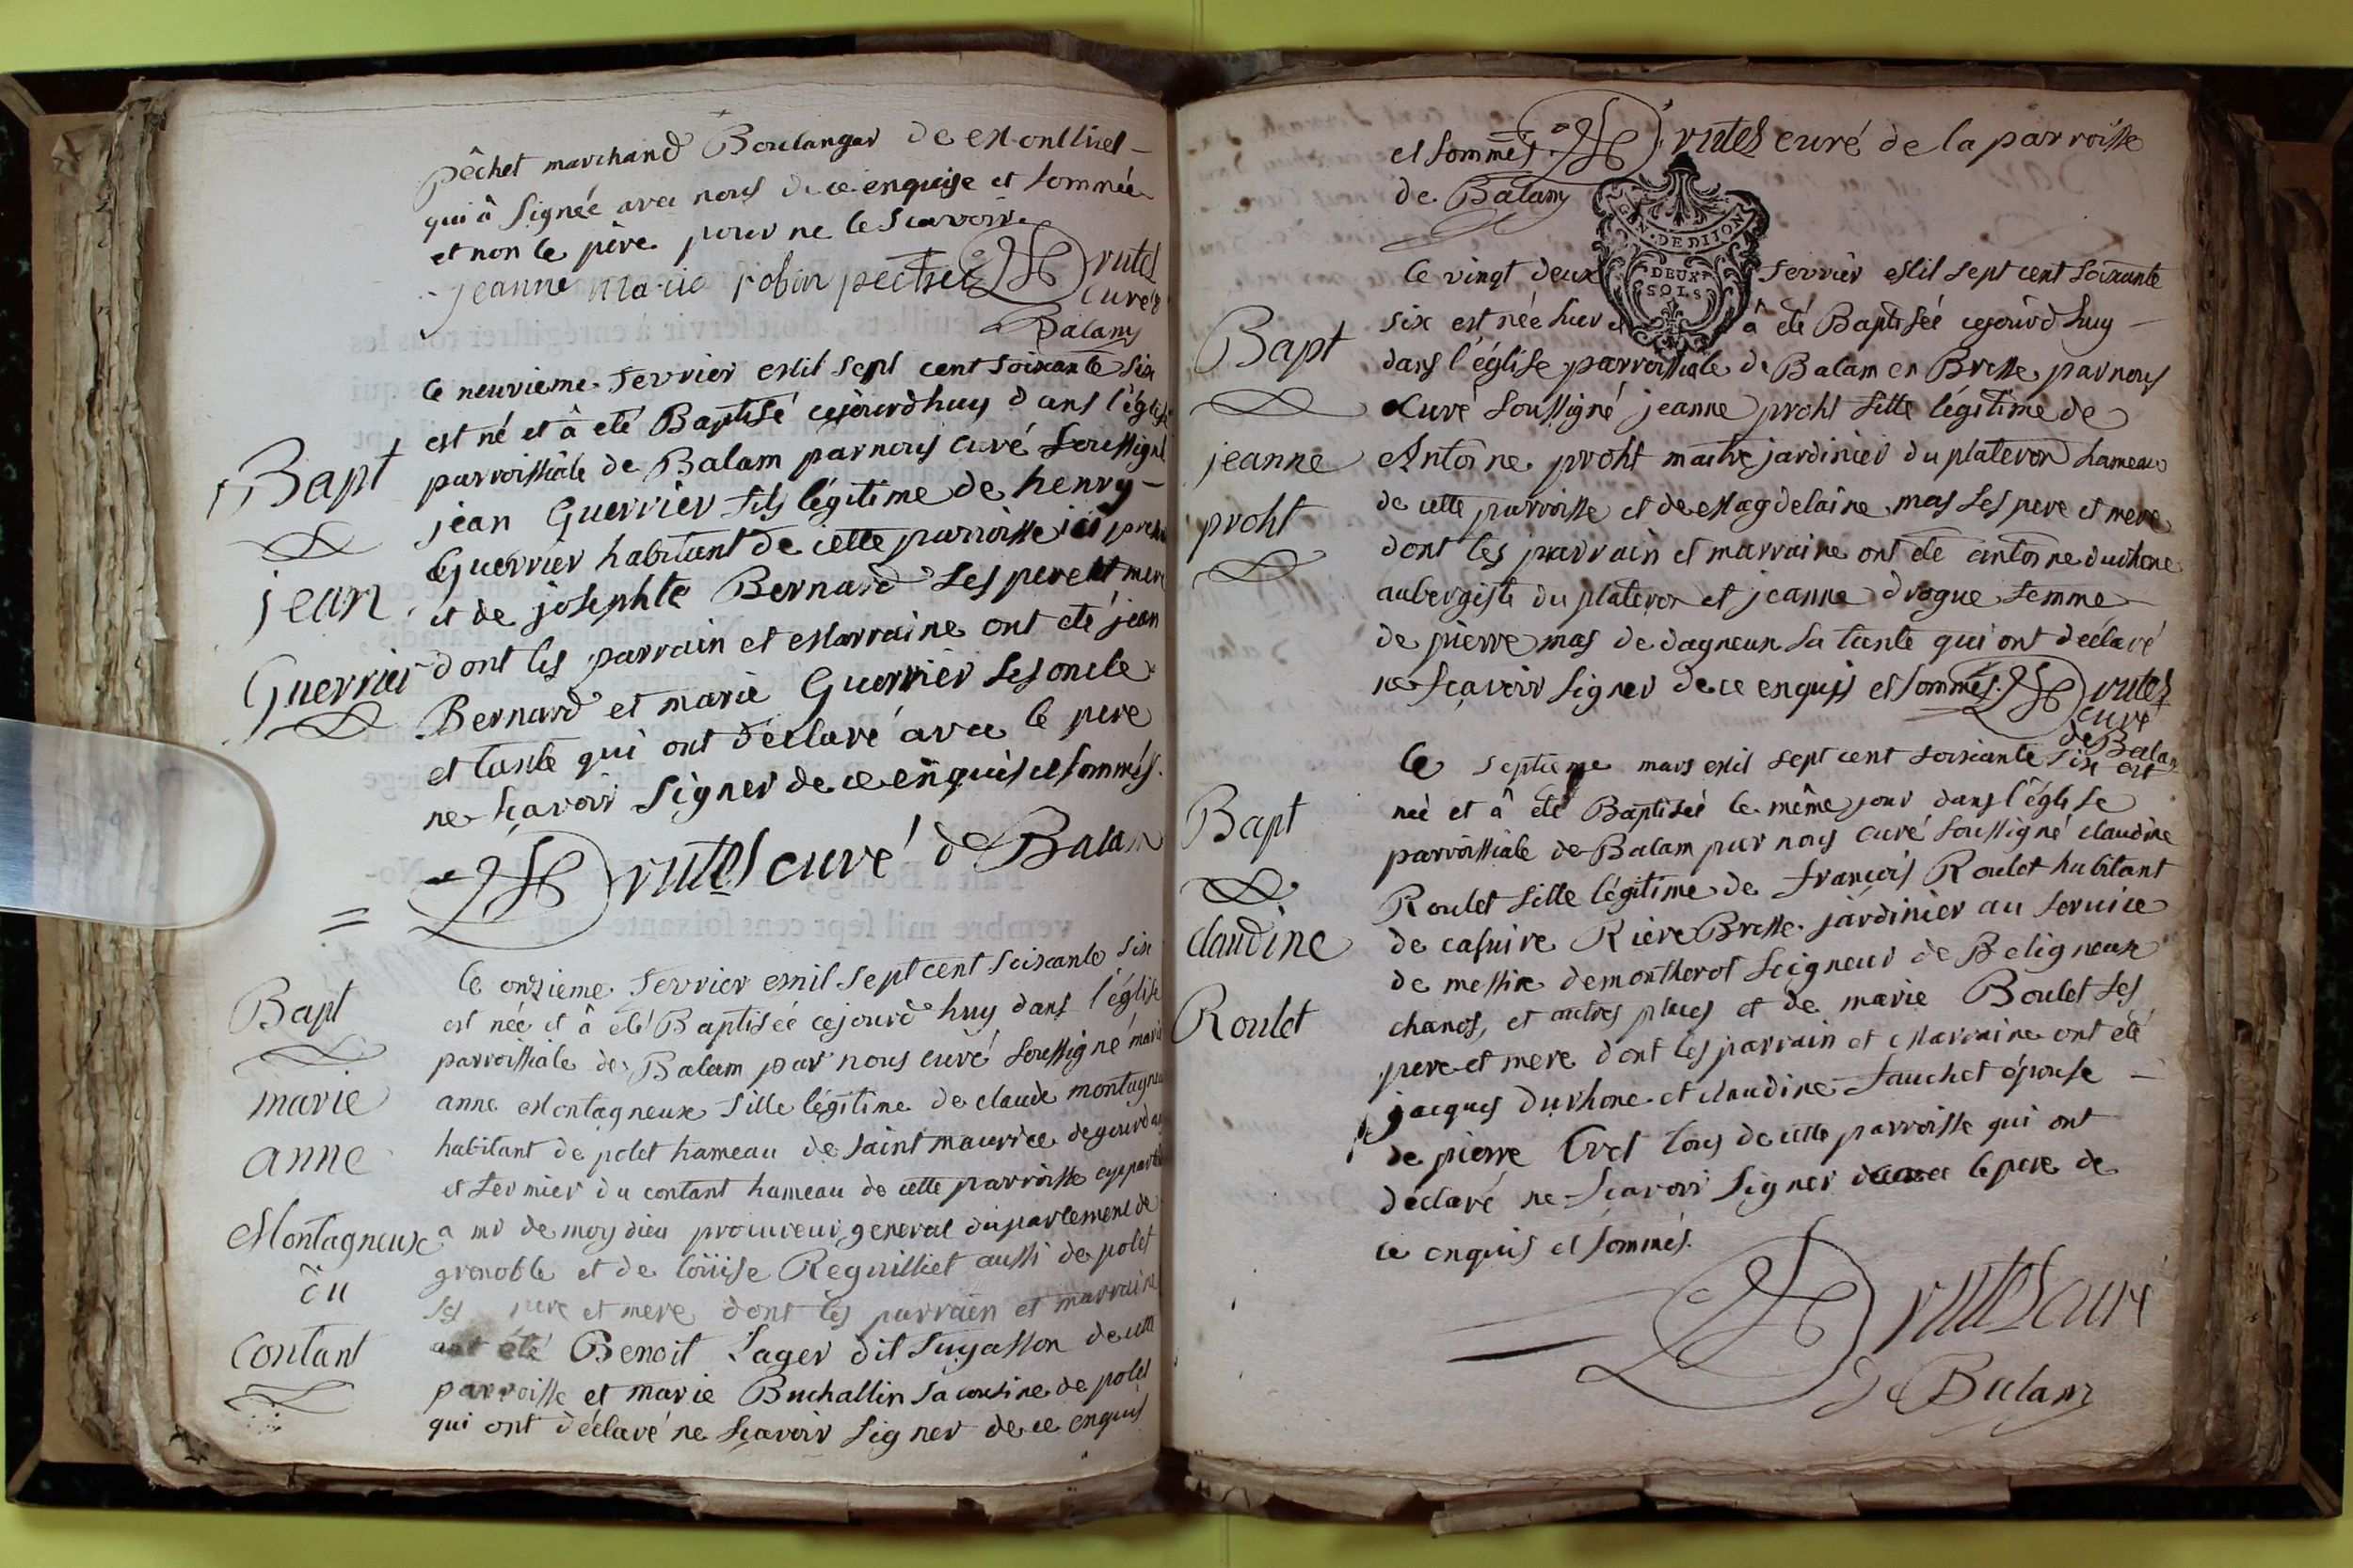 pêchet marchand Boulanger de Montluel
qui à signée avec nous de ce enquise et sommée
et non le père pour ne le scavoir
jeanne maria robin pechet rutes
curé
Balam
le neuvieme fevrier mil sept cent soixante six
est né et à eté Baptisé cejourd huy dans l'église
Bapt
parroissiale de Balam par nous curé soussigné
jean Guerrier fils légitime de henry
Guerrier habitant de cette parroisse ici
jean
et de josephte Bernard ses pere et mere
dont les parrain et Marraine ont eté jean
Guerrier
Bernard et marie Guerrier ses oncle
et tante qui ont déclaré avec le pere
ne sçavoir signer de ce enquis et sommés.
rutes curé de Balam
le onzieme fevrier mil sept cent soixante six
Bapt
est née et à eté Baptisée cejourd huy dans l'église
parroissiale de Balam par nous curé soussigné marie
marie
anne Montagneux fille légitime de claude montagneux
anne
habitant de polet hameau de saint maurice de gourdan
et fermier du contant hameau de cette parroisse
Montagneux
a mr de moydieu procureur general du parlement de
du
grenoble et de loüise Reguilliet aussi de polet
ses pere et mere dont les parrain et marraine
contant
ont eté Benoit Sager dit de cette
parroisse et marie Buchallin sa cousine de polet
qui ont déclaré ne sçavoir signer de ce enquis
et sommés. rutes curé de la parroisse
de Balam
GEN. DE DIJON
DEUX
SOLS
le vingt deux fevrier Mil sept cent soixante
six est née hier et à eté Baptisée cejourd huy
Bapt
dans l'église parroissiale de Balam en Bresse par nous
Curé soussigné jeanne proht fille légitime de
jeanne
Antoine proht maitre jardinier du plateron hameau
proht
de cette parroisse et de Magdelaine mas ses pere et mere
dont les parrain et marraine ont eté antoine durhone
aubergiste du plateron et jeanne drogue femme
de pierre mas de dagneux sa tante qui ont déclaré
ne sçavoir signer de ce enquis et sommés. rutes
curé
de Balam
le septieme mars mil sept cent soixante six est
Bapt
née et à eté Baptisée le même jour dans l'église
parroissiale de Balam par nous curé soussigné claudine
Roulet fille légitime de françois Roulet habitant
claudine
de casuire Riere Bresse jardinier au service
de messire demontherot seigneur de Beligneux
Roulet
chanos, et autres places et de marie Boulet ses
pere et mere dont les parrain et Marraine ont eté
jacques durhone et claudine fauchet épouse
de pierre tous de cette parroisse qui ont
déclaré ne sçavoir signer le pere de
ce enquis et sommés.
rutes curé
de Balam